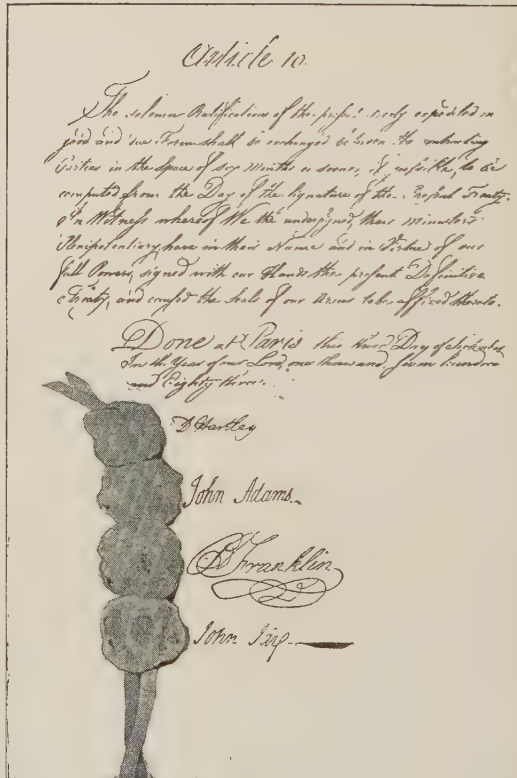 Article 10.
The solemn Ratifications of the present Treaty expedited in
good and due Form shall be exchanged between the contracting
Parties in the Space of Six Months or sooner, if possible, to be
computed from the Day of the Signature of the Present Treaty.
In Witness whereof We the undersigned, their Ministers
Plenipotentiary, have in their Name and in Virtue of our
full Powers, signed with our Hands the present Definitive
Treaty, and caused the Seals of our Arms to be affixed thereto.
Done at Paris this third Day of September
In the Year of our Lord, one thousand seven hundred
and Eighty three.
D Hartley
John Adams.
B Franklin
John Jay.